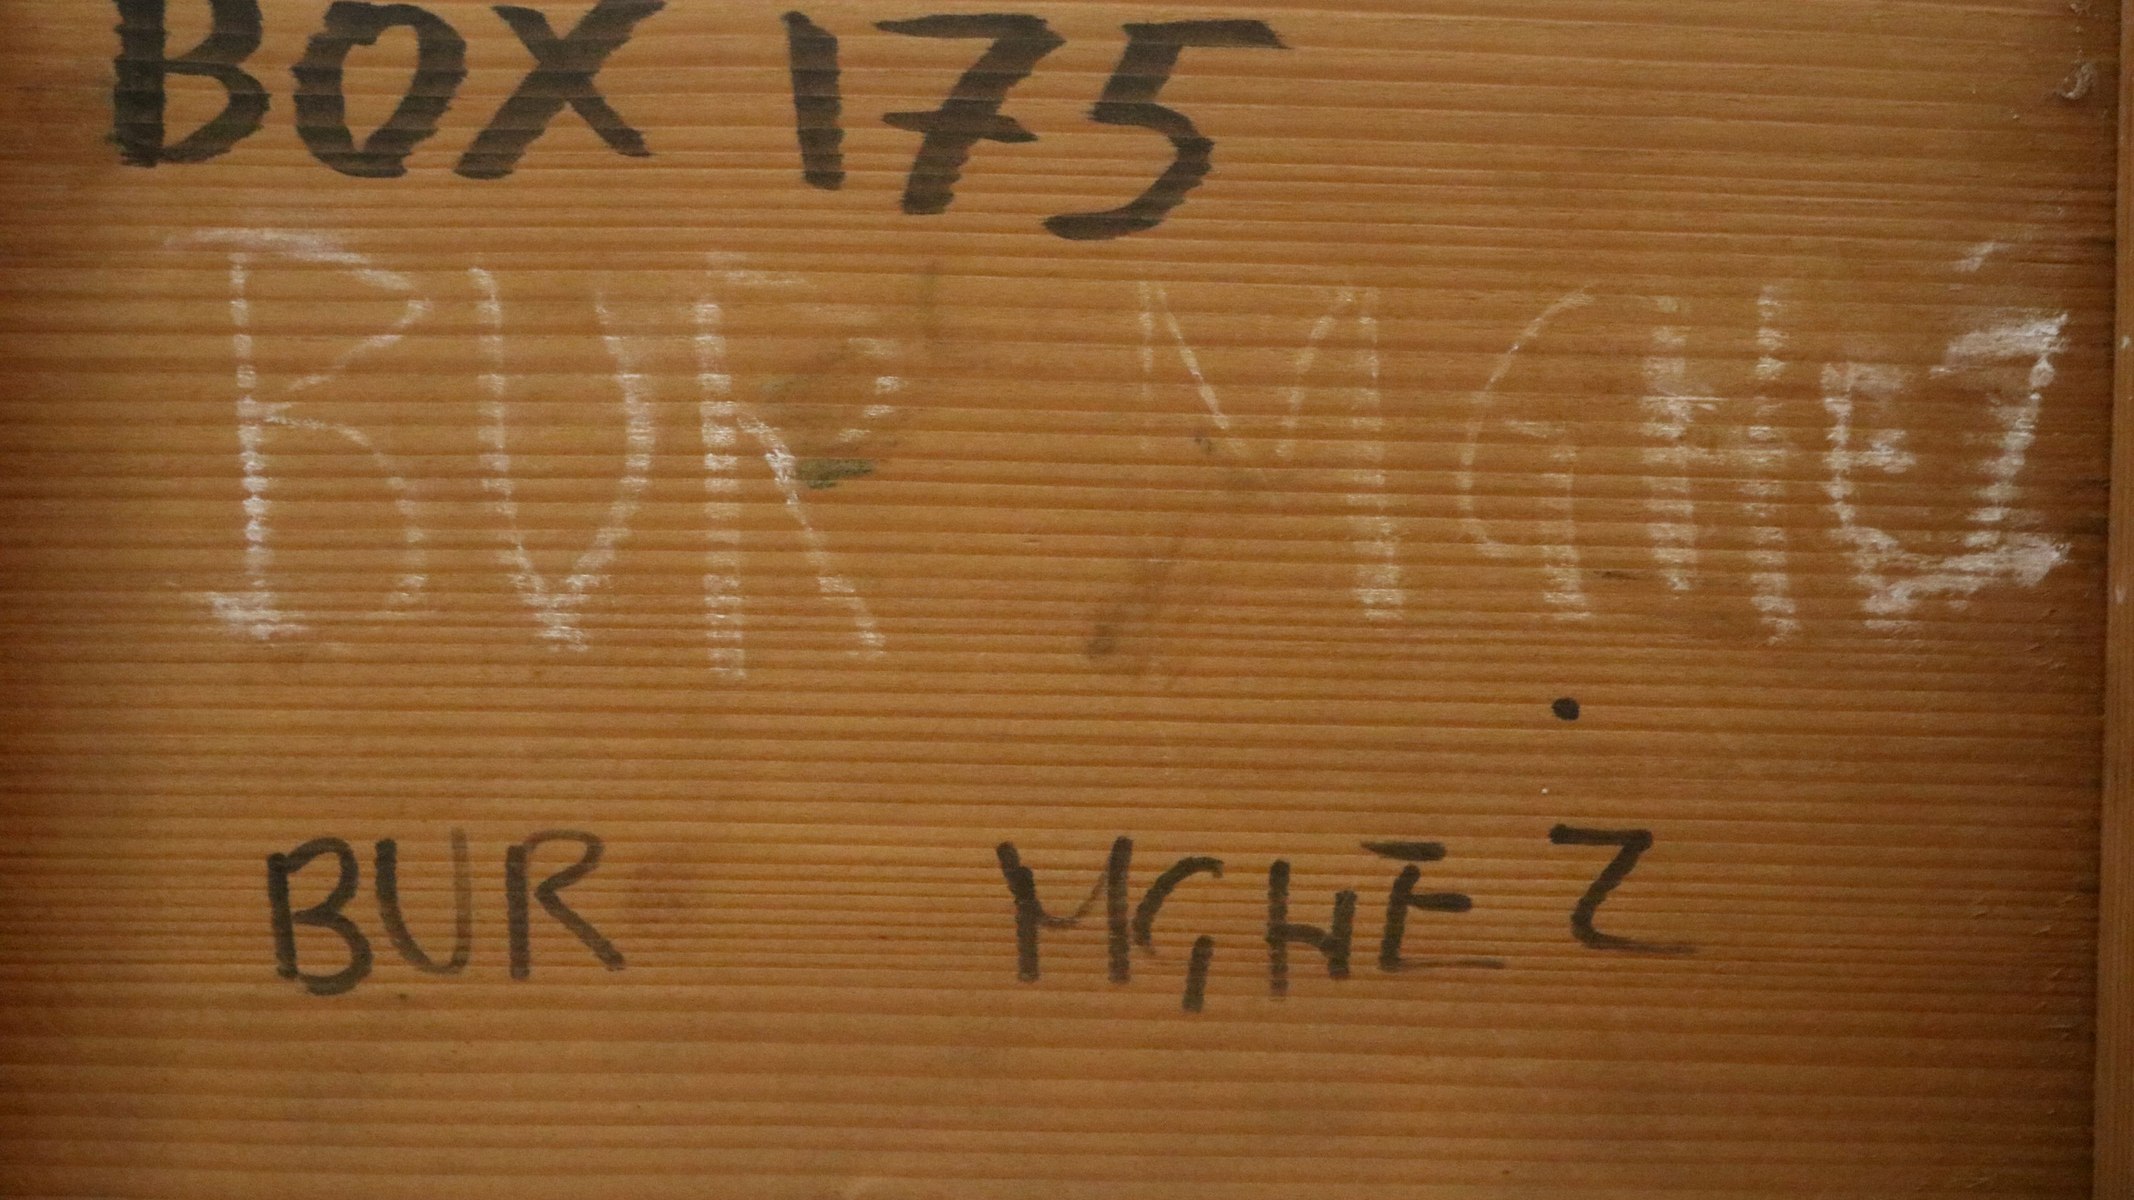 BOX 175
BUR MGHEZ
BUR MGHEZ